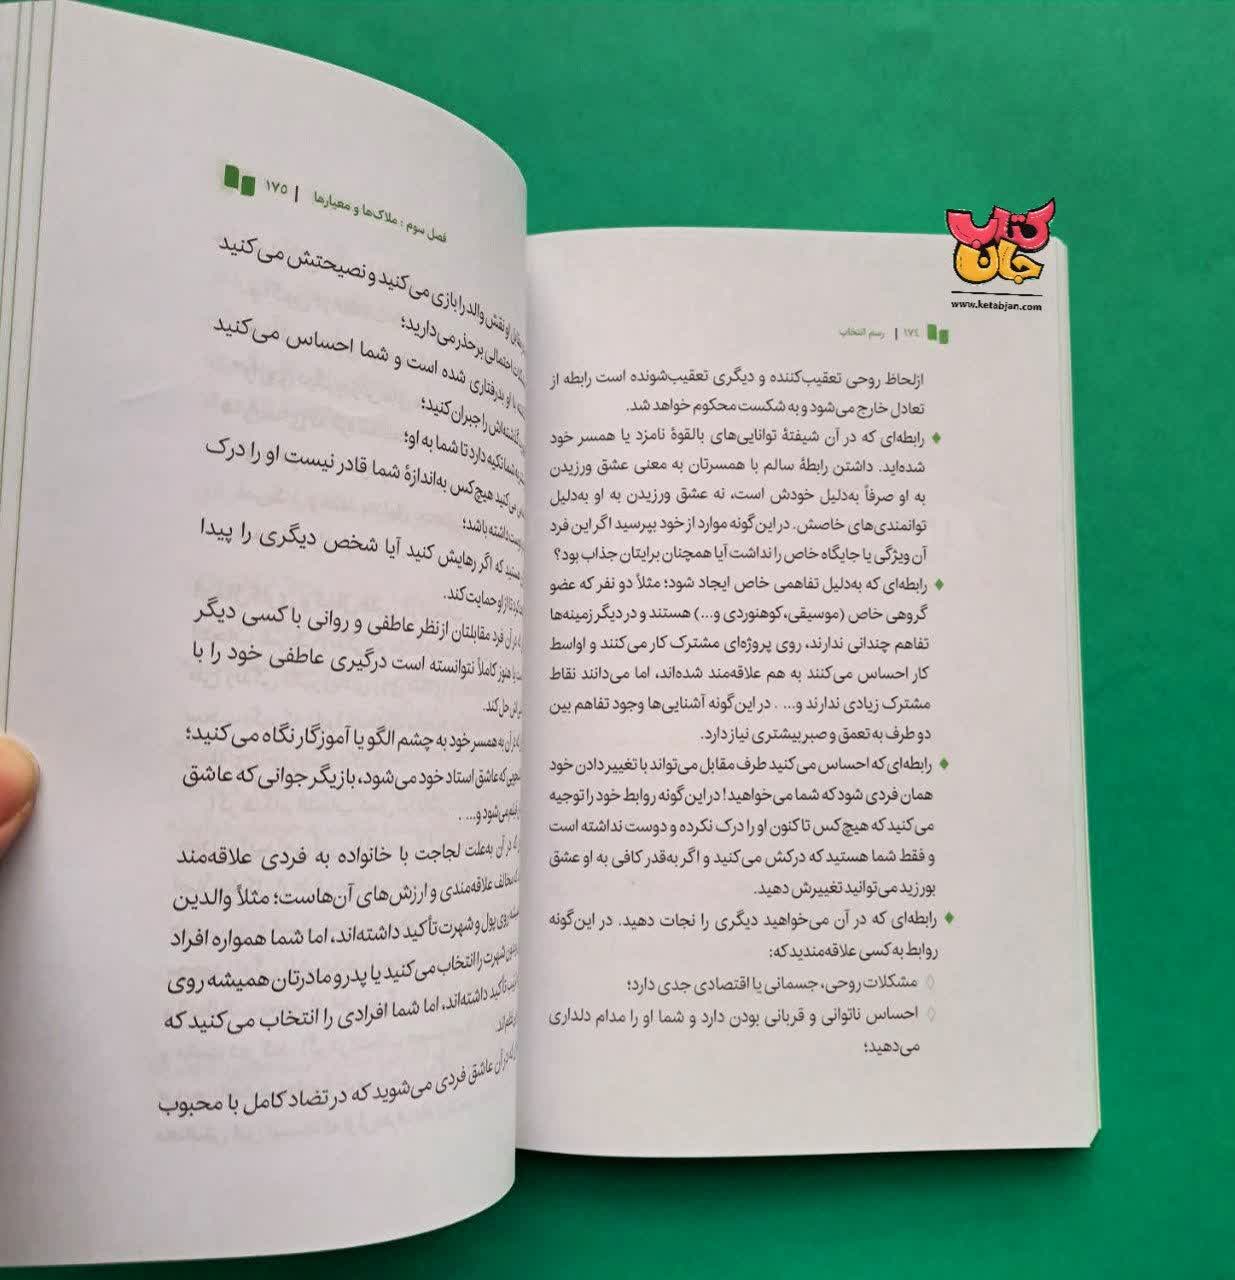 کتاب
جان
www.ketabjan.com
۱۷۴ | رسم انتخاب
ازلحاظ روحی تعقیب‌کننده و دیگری تعقیب‌شونده است رابطه از
تعادل خارج می‌شود و به شکست محکوم خواهد شد.
♦ رابطه‌ای که در آن شیفتهٔ توانایی‌های بالقوهٔ نامزد یا همسر خود
شده‌اید. داشتن رابطهٔ سالم با همسرتان به معنی عشق ورزیدن
به او صرفاً به‌دلیل خودش است، نه عشق ورزیدن به او به‌دلیل
توانمندی‌های خاصش. در این‌گونه موارد از خود بپرسید اگر این فرد
آن ویژگی یا جایگاه خاص را نداشت آیا همچنان برایتان جذاب بود؟
♦ رابطه‌ای که به‌دلیل تفاهمی خاص ایجاد شود؛ مثلاً دو نفر که عضو
گروهی خاص (موسیقی، کوهنوردی و...) هستند و در دیگر زمینه‌ها
تفاهم چندانی ندارند، روی پروژه‌ای مشترک کار می‌کنند و اواسط
کار احساس می‌کنند به هم علاقه‌مند شده‌اند، اما می‌دانند نقاط
مشترک زیادی ندارند و... . در این‌گونه آشنایی‌ها وجود تفاهم بین
دو طرف به تعمق و صبر بیشتری نیاز دارد.
♦ رابطه‌ای که احساس می‌کنید طرف مقابل می‌تواند با تغییر دادن خود
همان فردی شود که شما می‌خواهید! در این‌گونه روابط خود را توجیه
می‌کنید که هیچ‌کس تاکنون او را درک نکرده و دوست نداشته است
و فقط شما هستید که درکش می‌کنید و اگر به‌قدر کافی به او عشق
بورزید می‌توانید تغییرش دهید.
♦ رابطه‌ای که در آن می‌خواهید دیگری را نجات دهید. در این‌گونه
روابط به کسی علاقه‌مندید که:
◊ مشکلات روحی، جسمانی یا اقتصادی جدی دارد؛
◊ احساس ناتوانی و قربانی بودن دارد و شما او را مدام دلداری
می‌دهید؛
فصل سوم : ملاک‌ها و معیارها | ۱۷۵
او نقش والد را بازی می‌کنید و نصیحتش می‌کنید
احتمالی برحذر می‌دارید؛
با او بدرفتاری شده است و شما احساس می‌کنید
گذشته‌اش را جبران کنید؛
به شما تکیه دارد تا شما به او؛
می‌کنید هیچ‌کس به‌اندازهٔ شما قادر نیست او را درک
دوست داشته باشد؛
هستید که اگر رهایش کنید آیا شخص دیگری را پیدا
تا از او حمایت کند.
در آن فرد مقابلتان ازنظر عاطفی و روانی با کسی دیگر
یا هنوز کاملاً نتوانسته است درگیری عاطفی خود را با
حل کند.
در آن به همسر خود به چشم الگو یا آموزگار نگاه می‌کنید؛
که عاشق استاد خود می‌شود، بازیگر جوانی که عاشق
می‌شود و... .
در آن به‌علت لجاجت با خانواده به فردی علاقه‌مند
مخالف علاقه‌مندی و ارزش‌های آن‌هاست؛ مثلاً والدین
روی پول و شهرت تأکید داشته‌اند، اما شما همواره افراد
شهرت را انتخاب می‌کنید یا پدر و مادرتان همیشه روی
تأکید داشته‌اند، اما شما افرادی را انتخاب می‌کنید که
در آن عاشق فردی می‌شوید که در تضاد کامل با محبوب